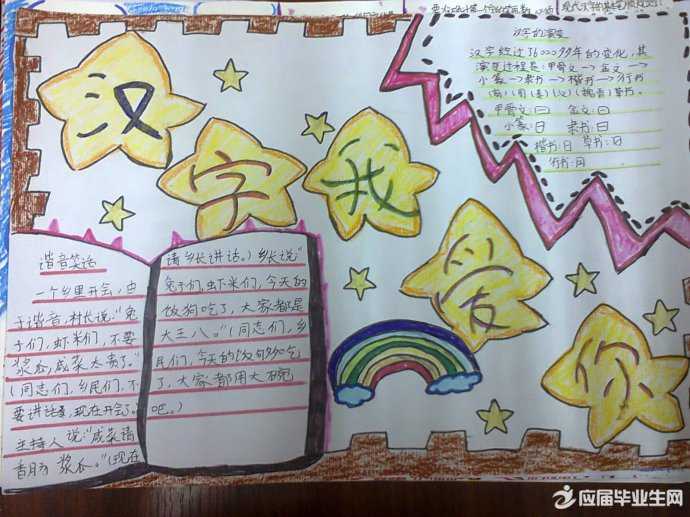 汉字我爱你
汉字的演变
汉字经过了6000多年的变化,其
演变过程是:甲骨文→金文→
小篆→隶书→楷书→行书
甲骨文:日 金文:日
小篆:日 隶书:日
楷书:日 草书:日
行书:
谐音笑话
一个乡里开会,由
于谐音,村长说:“兔
子们,虾米们,不要
浆瓜,咸菜太贵了。”
(同志们,乡民们,不
要讲话,现在开会了。)
主持人说:“咸菜请
香肠浆瓜。”(现在
请乡长讲话。)乡长说:“
兔子们,虾米们,今天的
饭狗吃了,大家都是
大王八。”(同志们,乡
民们,今天的饭够吃
了,大家都用大碗
吧。)
应届毕业生网